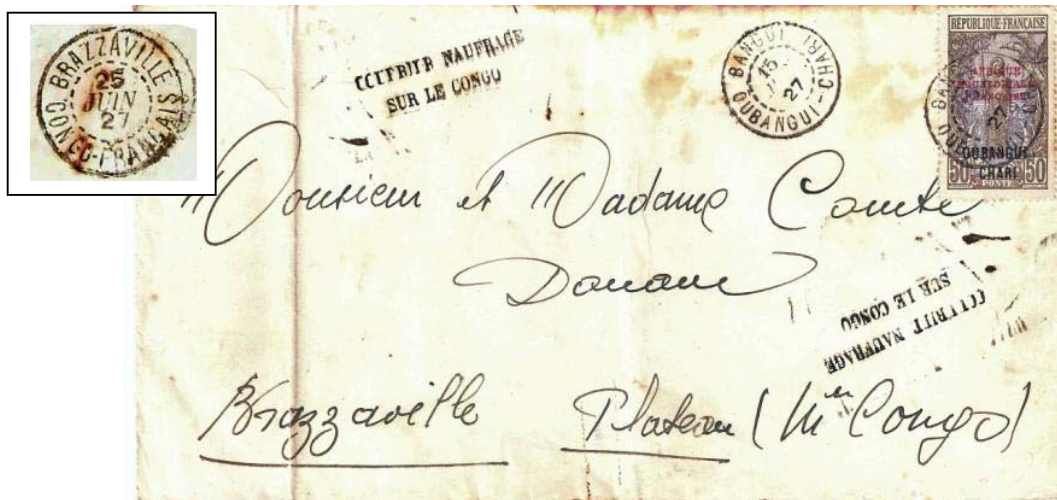 BRAZZAVILLE
25
JUIN
27
CONGO-FRANÇAIS
COURRIER NAUFRAGE
SUR LE CONGO
BANGUI
15
27
OUBANGUI-CHARI
RÉPUBLIQUE FRANÇAISE
AFRIQUE
EQUATORIALE
FRANÇAISE
27
OUBANGUI
CHARI
50 POSTE 50
Monsieur et Madame Comte
Douane
COURRIER NAUFRAGE
SUR LE CONGO
Brazzaville Plateau (Men Congo)